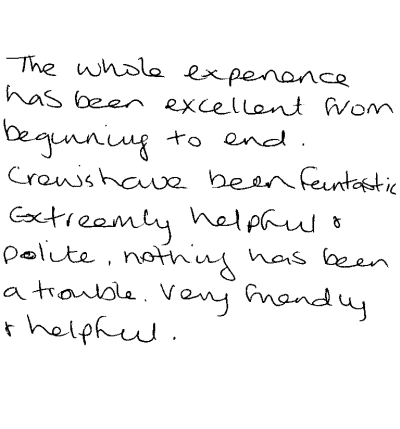 The whole experience
has been excellent from
beginning to end.
Crews have been fantastic
Extreemly helpful &
polite, nothing has been
a trouble. Very friendly
& helpful.